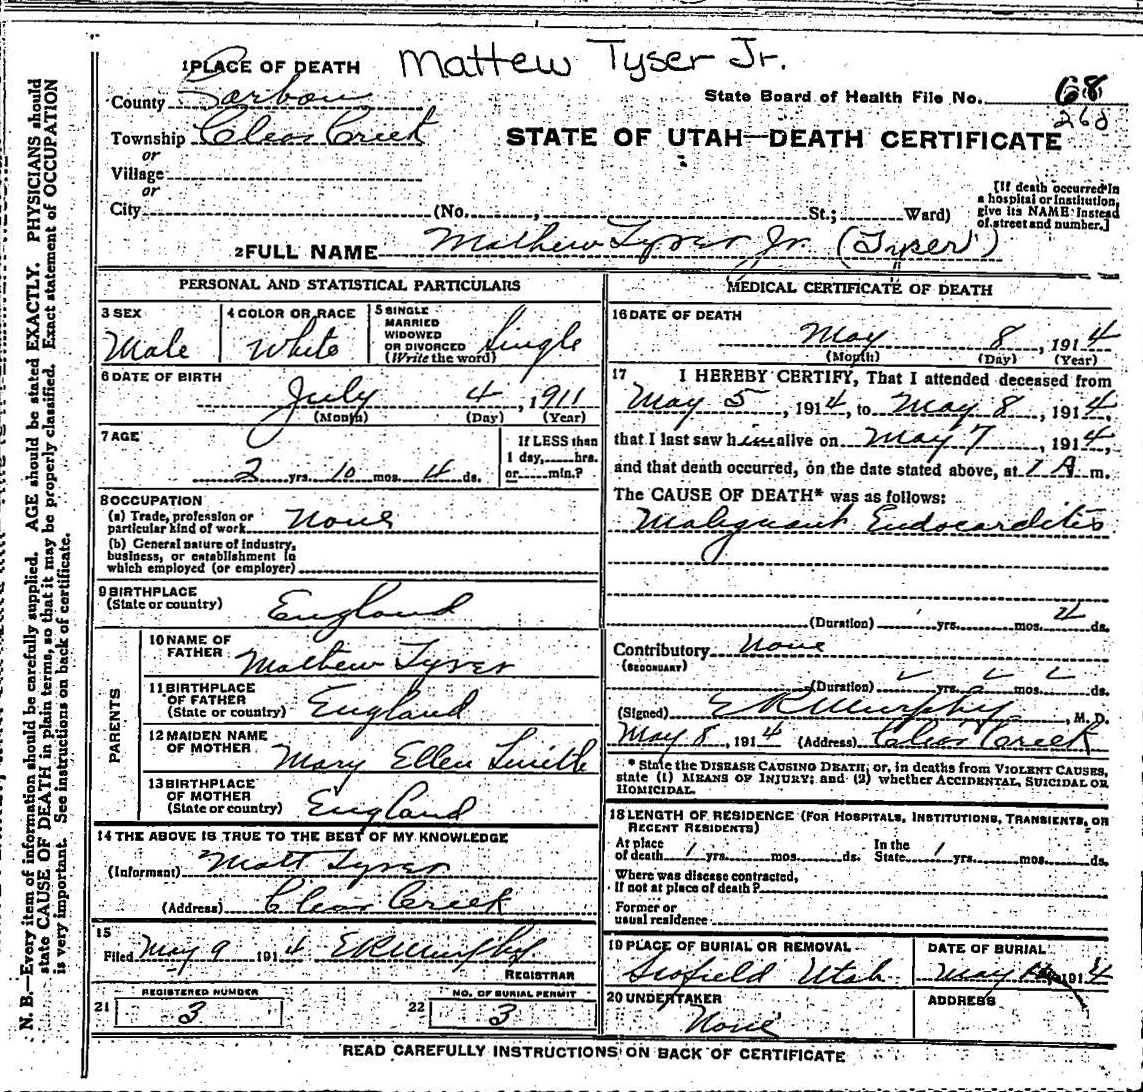 Mattew Tyser Jr.
1 PLACE OF DEATH
County Carbon
State Board of Health File No. 68
268
Township Clear Creek
STATE OF UTAH—DEATH CERTIFICATE
or
Village
or
City (No. , St.; Ward)
[If death occurred in a hospital or institution, give its NAME instead of street and number.]
2 FULL NAME Mathew Tyser Jr. (Tyser)
PERSONAL AND STATISTICAL PARTICULARS
3 SEX
Male
4 COLOR OR RACE
White
5 SINGLE
MARRIED
WIDOWED
OR DIVORCED
(Write the word)
Single
6 DATE OF BIRTH
July 4, 1911
(Month) (Day) (Year)
7 AGE
2 yrs. 10 mos. 4 ds.
If LESS than
1 day, hrs.
or min.?
8 OCCUPATION
(a) Trade, profession or
particular kind of work None
(b) General nature of industry,
business, or establishment in
which employed (or employer)
9 BIRTHPLACE
(State or country) England
PARENTS
10 NAME OF
FATHER Mathew Tyser
11 BIRTHPLACE
OF FATHER
(State or country) England
12 MAIDEN NAME
OF MOTHER Mary Ellen Smith
13 BIRTHPLACE
OF MOTHER
(State or country) England
14 THE ABOVE IS TRUE TO THE BEST OF MY KNOWLEDGE
(Informant) Matt Tyser
(Address) Clear Creek
15
Filed May 9 1914 E R Murphy
REGISTRAR
21 REGISTERED NUMBER
3
22 NO. OF BURIAL PERMIT
3
MEDICAL CERTIFICATE OF DEATH
16 DATE OF DEATH
May 8, 1914
(Month) (Day) (Year)
17 I HEREBY CERTIFY, That I attended deceased from
May 5, 1914, to May 8, 1914,
that I last saw him alive on May 7, 1914,
and that death occurred, on the date stated above, at 1 A m.
The CAUSE OF DEATH* was as follows:
Malignant Endocarditis
(Duration) yrs. mos. 4 ds.
Contributory None
(SECONDARY)
(Duration) yrs. mos. ds.
(Signed) E R Murphy, M. D.
May 8, 1914 (Address) Clear Creek
* State the DISEASE CAUSING DEATH; or, in deaths from VIOLENT CAUSES,
state (1) MEANS OF INJURY; and (2) whether ACCIDENTAL, SUICIDAL OR
HOMICIDAL.
18 LENGTH OF RESIDENCE (FOR HOSPITALS, INSTITUTIONS, TRANSIENTS, OR
RECENT RESIDENTS)
At place
of death 1 yrs. mos. ds.
In the
State 1 yrs. mos. ds.
Where was disease contracted,
If not at place of death?
Former or
usual residence
19 PLACE OF BURIAL OR REMOVAL
Scofield Utah
DATE OF BURIAL
May 1914
20 UNDERTAKER
None
ADDRESS
READ CAREFULLY INSTRUCTIONS ON BACK OF CERTIFICATE
N. B.—Every item of information should be carefully supplied. AGE should be stated EXACTLY. PHYSICIANS should
state CAUSE OF DEATH in plain terms, so that it may be properly classified. Exact statement of OCCUPATION
is very important. See instructions on back of certificate.